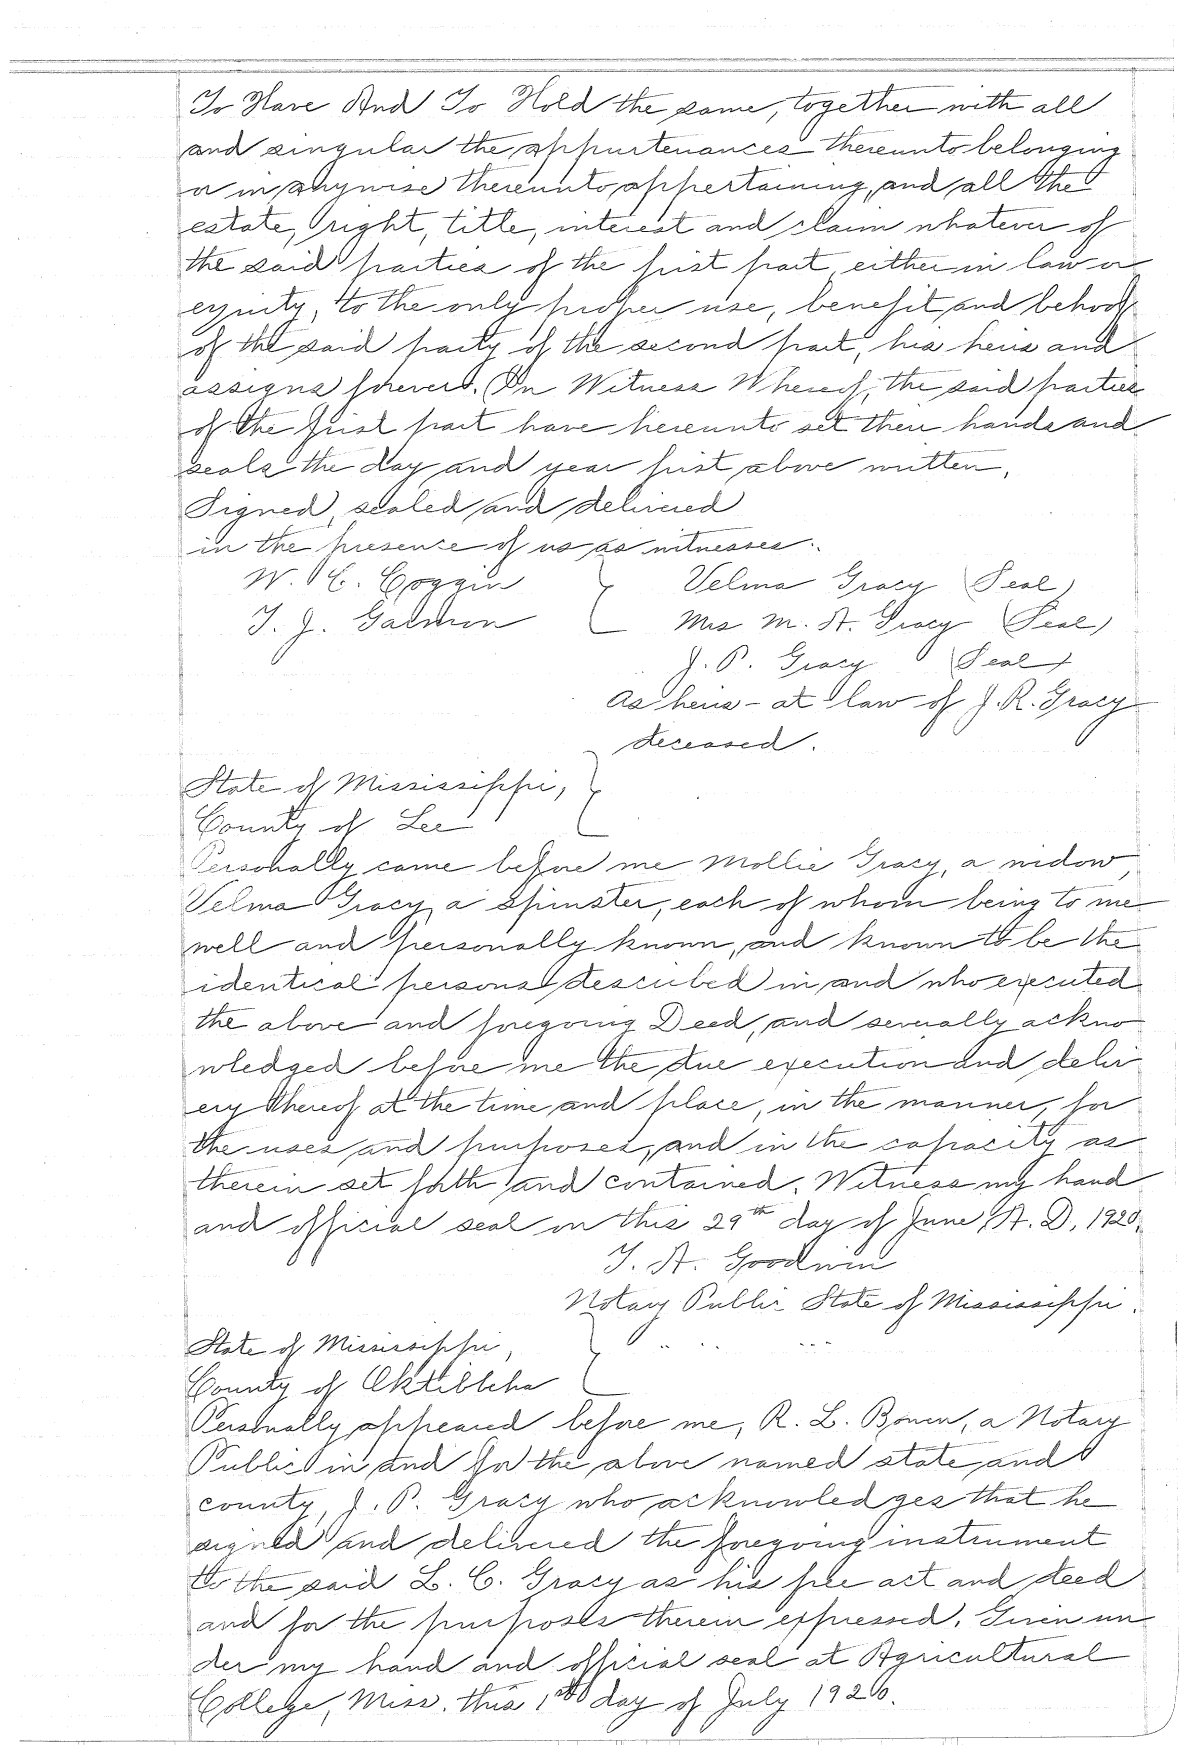 To Have And To Hold the same, together with all
and singular the appurtenances thereunto belonging
or in anywise thereunto appertaining, and all the
estate, right, title, interest and claim whatever of
the said parties of the first part either in law or
equity, to the only proper use, benefit and behoof
of the said party of the second part, his heirs and
assigns forever. In Witness Whereof, the said parties
of the first part have hereunto set their hands and
seals the day and year first above written.
Signed, sealed and delivered
in the presence of us as witnesses:
W. C. Coggin } Velma Gracy (Seal)
T. J. Galmon Mrs M. A. Gracy (Seal)
J. P. Gracy (Seal)
As heirs - at law of J. R. Gracy
deceased.
State of Mississippi, }
County of Lee
Personally came before me Mollie Gracy, a widow,
Velma Gracy a spinster, each of whom being to me
well and personally known, and known to be the
identical persons described in and who executed
the above and foregoing Deed, and severally ackno
wledged before me the due execution and deliv
ery thereof at the time and place, in the manner, for
the uses and purposes, and in the capacity as
therein set forth and contained. Witness my hand
and official seal on this 29th day of June, A. D. 1920.
T. A. Goodwin
Notary Public State of Mississippi.
State of Mississippi, }
County of Oktibbeha
Personally appeared before me, R. L. Bowen, a Notary
Public in and for the above named state and
county, J. P. Gracy who acknowledges that he
signed and delivered the foregoing instrument
to the said L. C. Gracy as his free act and deed
and for the purposes therein expressed. Given un
der my hand and official seal at Agricultural
College, Miss. this 1st day of July 1920.